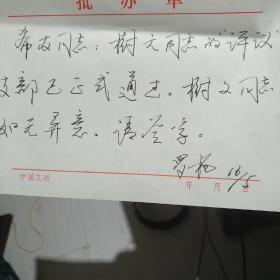 批办单
希友同志：树文同志的评议
支部已正式通过。树文同志
如无异意。请签字。
罗杨 16/5
中国文联
年 月 日